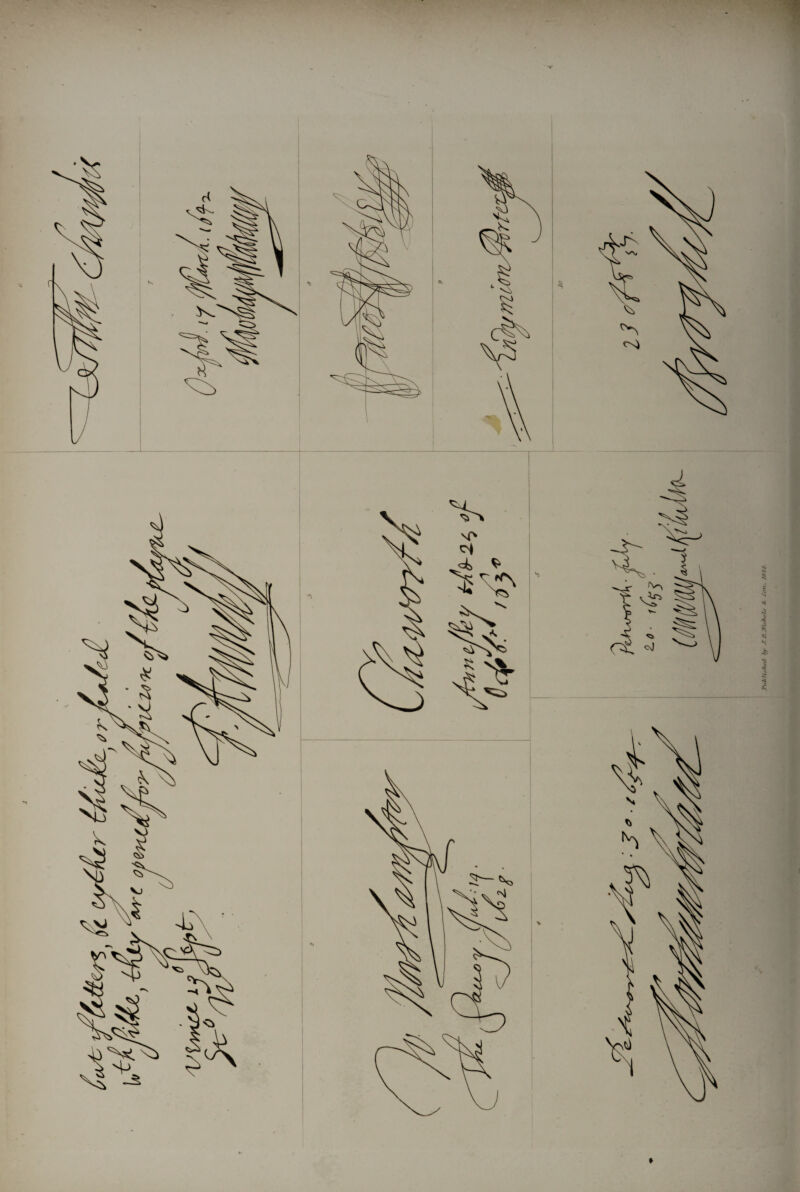 but if letters, be eyther thicke, or sealed
wth silke, they are opened for suspicion of the plague
Venice 13º Sept,
Stº Nº
W Northampton
The Sauoy. Jul: 19.
1628.
Chaworth
Annesley the 25 of
Octobr 1630
Petworth Aug: 30. 1654.
Northumberland
Petworth. July.
20. 1653.
Conway and Kilulta
Oxford. 17 March. 1642
Endymion Porter
23 of 8br
57.
Broghill
Published by J.B. Nichols & Son,